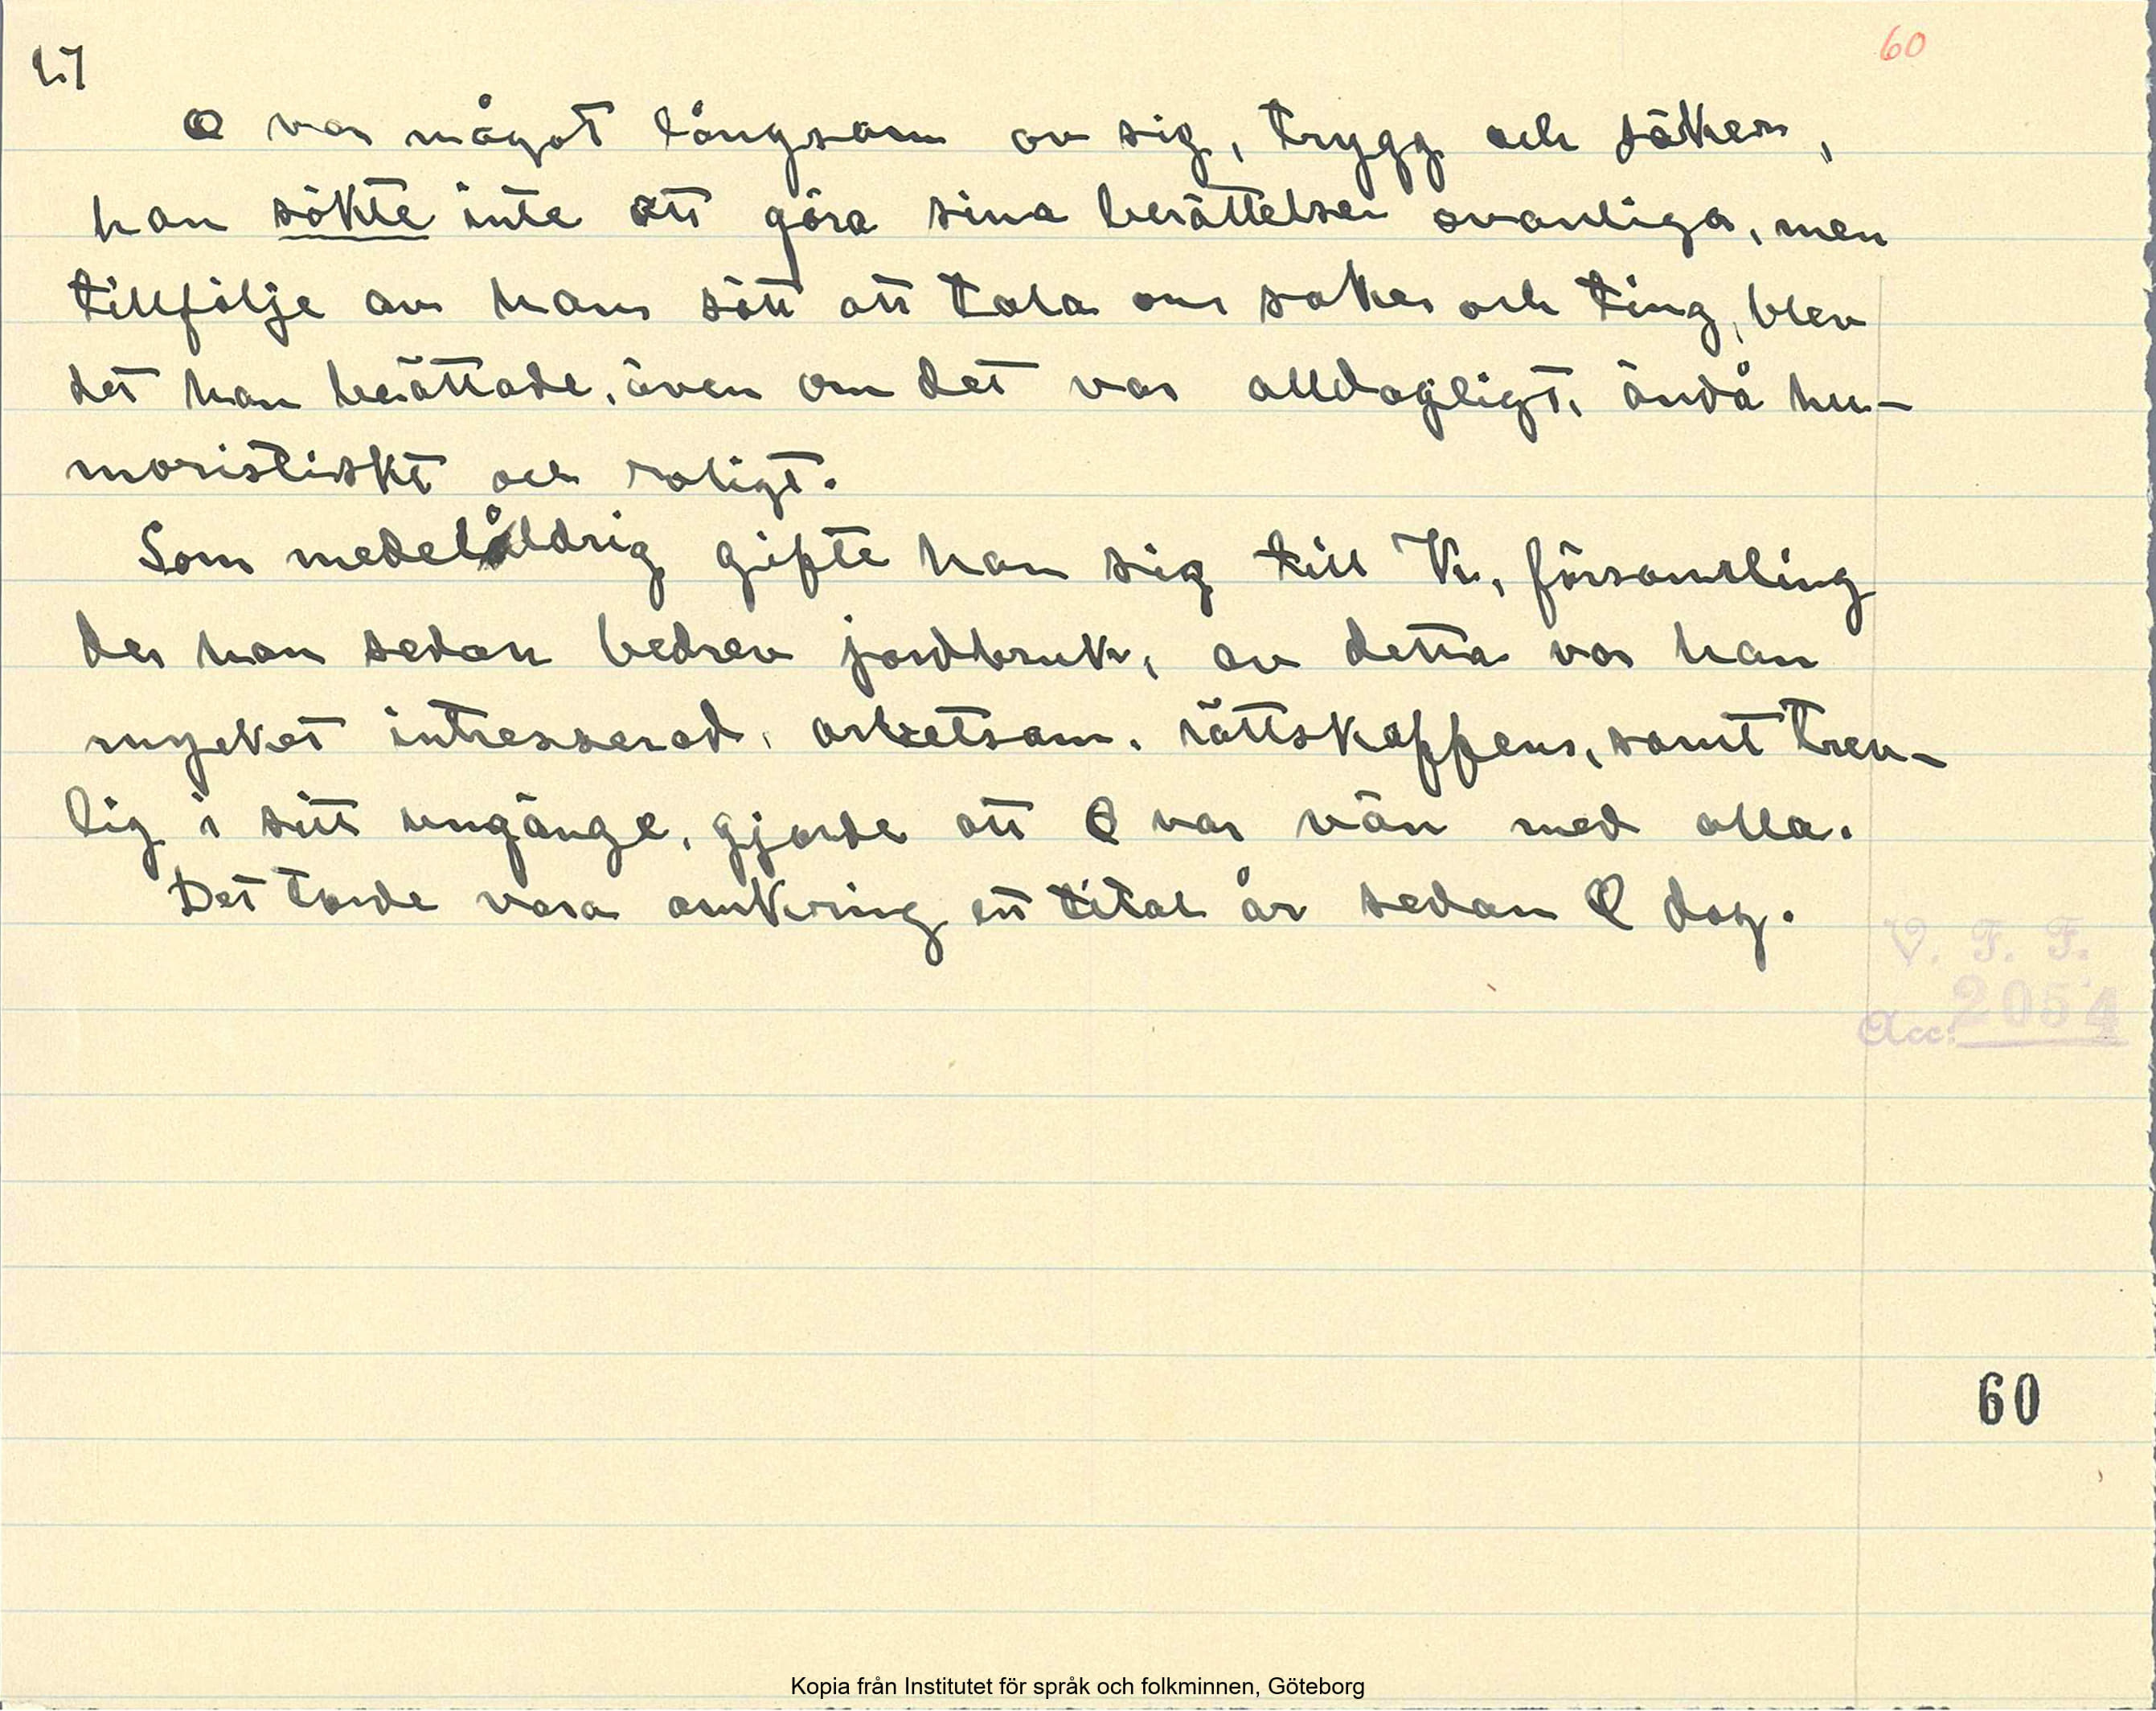 60
O var något långsam av sig, trygg och säker,
han sökte inte att göra sina berättelser ovanliga, men
tillfölje av hans sätt att tala om saker och ting, blev
det han berättade, även om det var alldagligt, ändå hu-
moristiskt och roligt.
Som medelåldrig gifte han sig till K., församling
der han sedan bedrev jordbruk, av detta var han
mycket intresserad, arbetsam, rättskaffens, samt trev-
lig i sitt umgänge, gjorde att O var vän med alla.
Det torde vara omkring ett tital år sedan O dog.
V. F. F.
Acc: 2054
60
Kopia från Institutet för språk och folkminnen, Göteborg